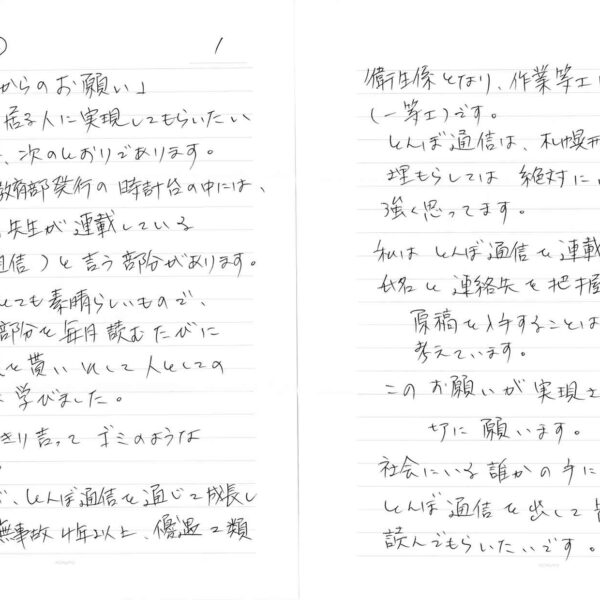 1
からのお願い」
居る人に実現してもらいたい
、次のとおりであります。
教育部発行の時計台の中には、
先生が連載している
通信)と言う部分があります。
とても素晴らしいもので、
部分を毎月読むたびに
を貰いそして人としての
学びました。
きり言ってゴミのような
、とんぼ通信を通じて成長し
無事故4年以上、優遇2類
衛生係となり、作業等工
(一等工)です。
とんぼ通信は、札幌刑
埋もらしては絶対に
強く思ってます。
私はとんぼ通信を連載
氏名と連絡先を把握
原稿を入手することは
考えています。
このお願いが実現さ
切に願います。
社会にいる誰かの手に
とんぼ通信を出して皆
読んでもらいたいです。